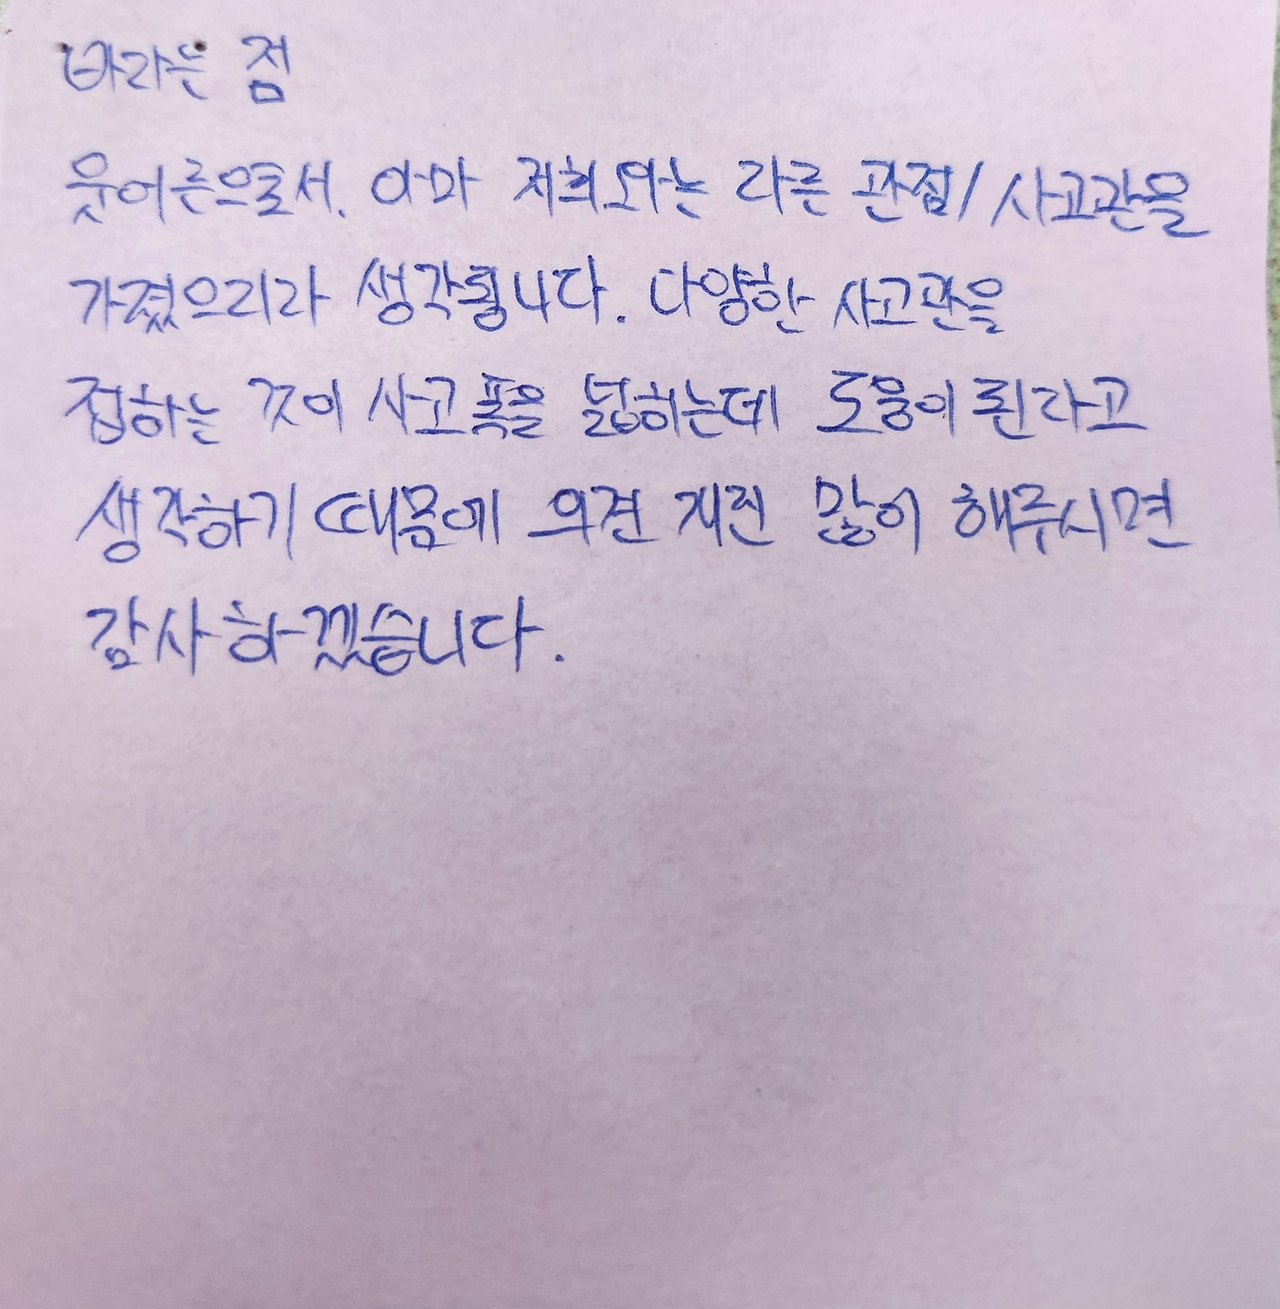 바라는 점
웃어른으로서. 아마 저희와는 다른 관점/사고관을
가졌으리라 생각됩니다. 다양한 사고관을
접하는 것이 사고 폭을 넓히는데 도움이 된다고
생각하기 때문에 의견 개진 많이 해주시면
감사하겠습니다.